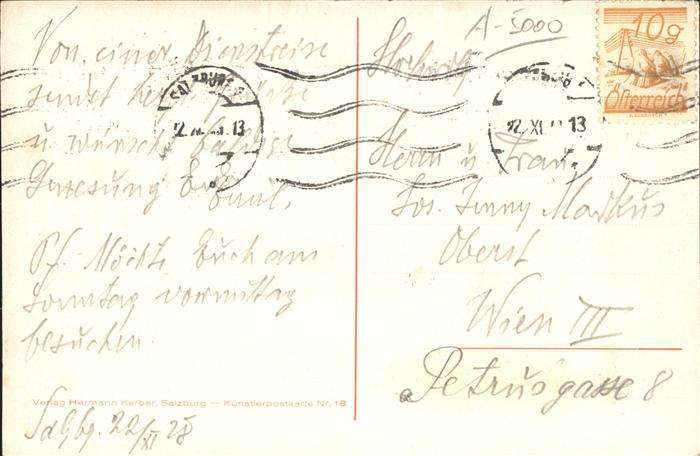 Von einer Dienstreise
sendet herzl. Grüsse
u wünscht baldige
Genesung Euer
Emil.
Pf. Möchte Euch am
Sonntag vormittag
besuchen.
Verlag Hermann Kerber, Salzburg — Künstlerpostkarte Nr. 18
Salzbg. 22/XI 28
A-5000
10g
Österreich
SALZBURG 2
22.XI. 13
22.XI. 13
Herrn u Frau
Jos. Jenny Markus
Oberst
Wien III
Petrusgasse 8